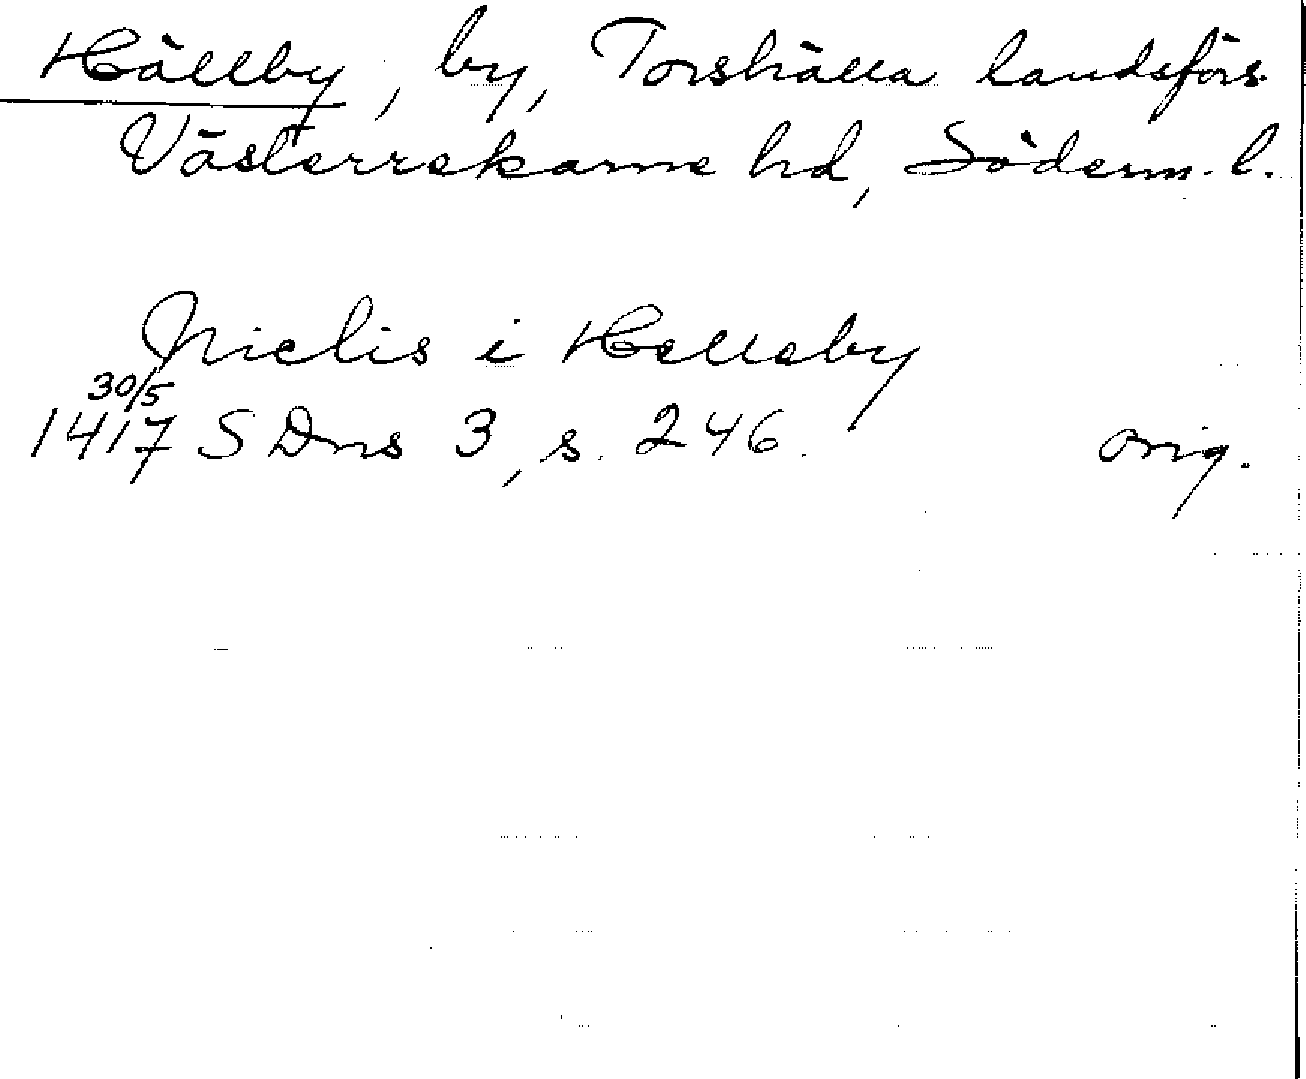 Hällby, by, Torshälla landsförs.
Västerrekarne hd, Söderm. l.
Nielis i Helleby
30/5
1417 SDns 3, s. 246. orig.